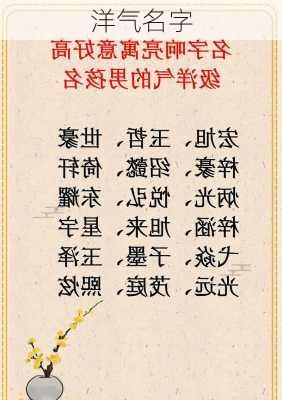 洋气名字
名字响亮寓意好高
级洋气的男孩名
宏旭、玉哲、世豪
梓豪、绍懿、倚轩
炳光、悦弘、东耀
梓涵、旭来、星宇
弋焱、子墨、玉泽
光远、茂庭、熙炫